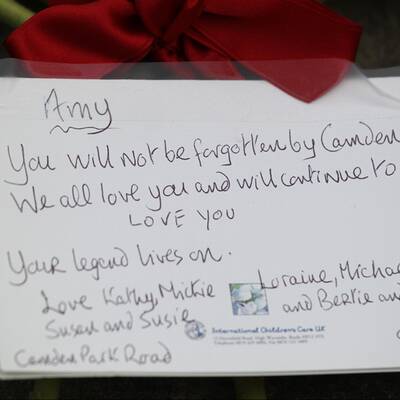 Amy
You will not be forgotten by Camden
We all love you and will continue to
LOVE YOU
Your legend lives on.
Love Kathy, Mickie
Susan and Susie
Camden Park Road
Loraine, Michae
and Bertie an
International Children's Care UK